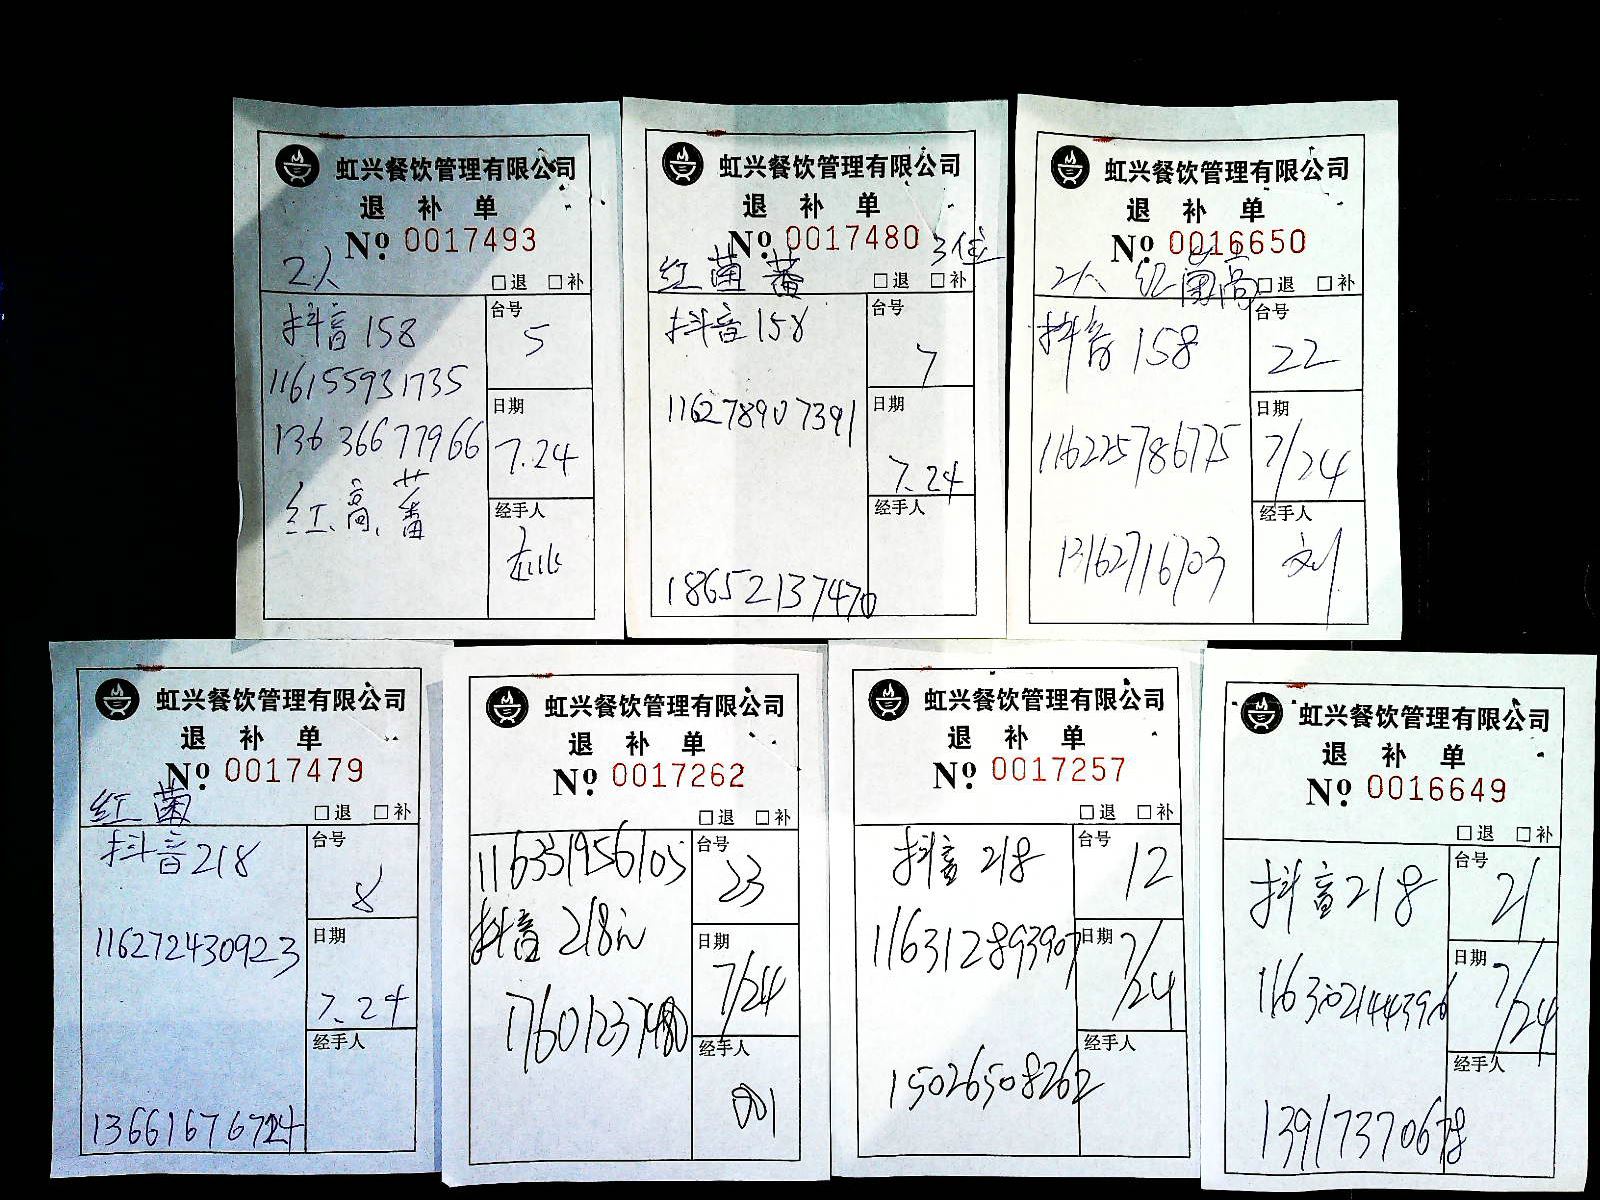 虹兴餐饮管理有限公司
退 补 单
Nº 0017493
2人
□退 □补
抖音 158
116155931735
13636677966
红、高、蕃
台号
5
日期
7.24
经手人
虹兴餐饮管理有限公司
退 补 单
Nº 0017480 3位
红 菌 蕃
□退 □补
抖音 158
116278907391
18652137470
台号
7
日期
7.24
经手人
虹兴餐饮管理有限公司
退 补 单
Nº 0016650
2人 红 菌 高
□退 □补
抖音 158
116225786775
13162716703
台号
22
日期
7/24
经手人
刘
虹兴餐饮管理有限公司
退 补 单
Nº 0017479
红 菌
□退 □补
抖音 218
116272430923
13661676724
台号
8
日期
7.24
经手人
虹兴餐饮管理有限公司
退 补 单
Nº 0017262
□退 □补
116331956105
抖音 218元
17601237480
台号
23
日期
7/24
经手人
001
虹兴餐饮管理有限公司
退 补 单
Nº 0017257
□退 □补
抖音 218
116312893907
15026508262
台号
12
日期
7/24
经手人
虹兴餐饮管理有限公司
退 补 单
Nº 0016649
□退 □补
抖音 218
116302144396
13917370678
台号
21
日期
7/24
经手人